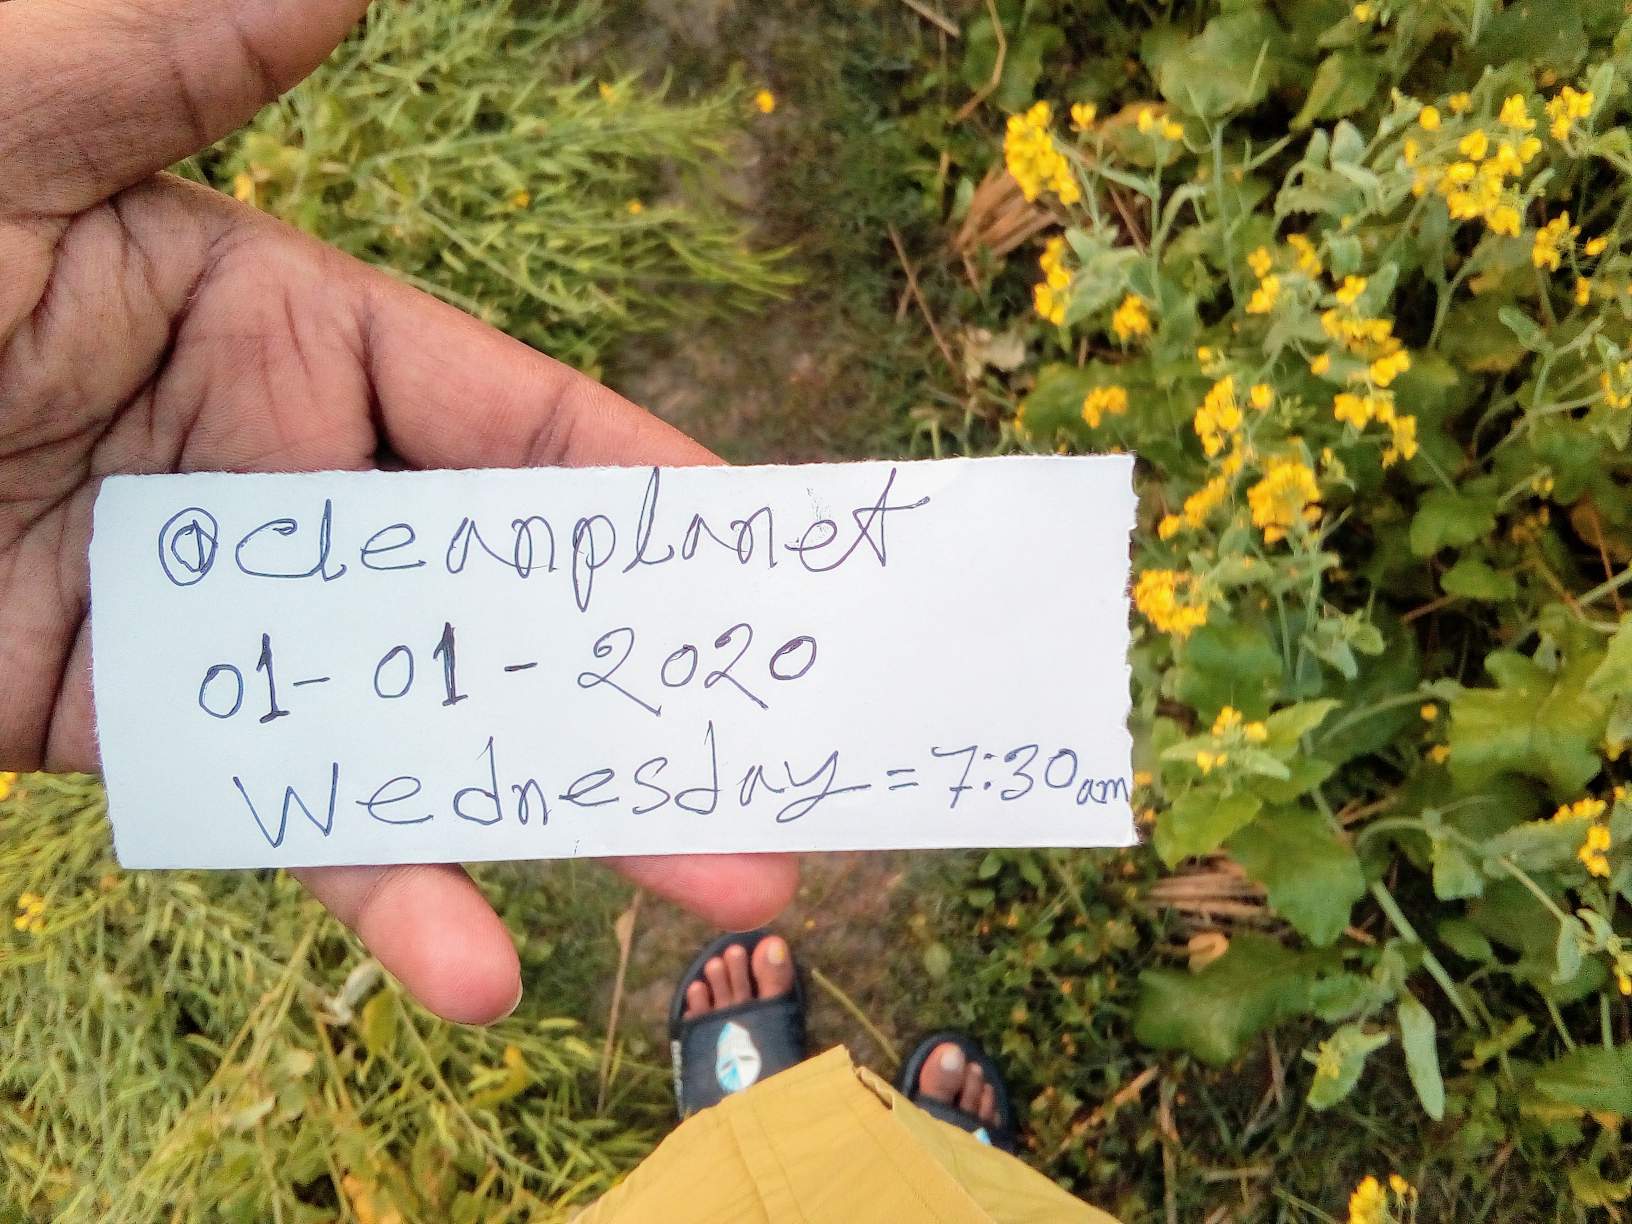 @cleanplanet
01-01-2020
Wednesday=7:30am